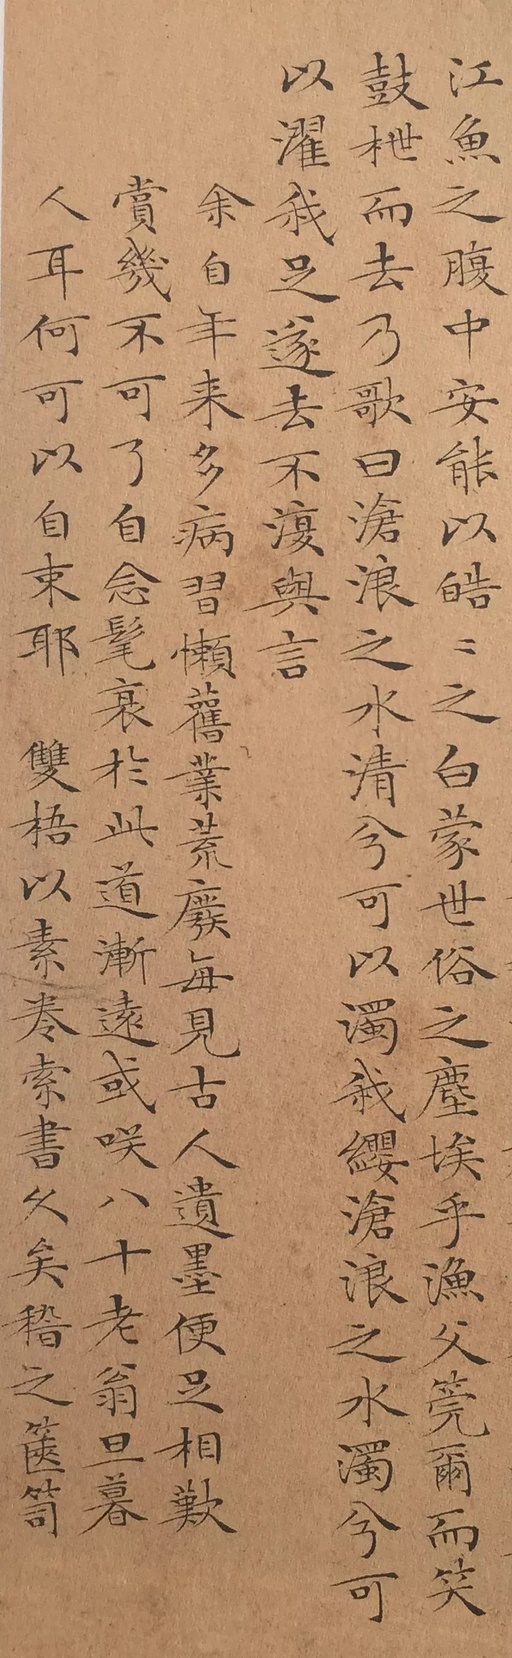 江魚之腹中安能以皓〻之白蒙世俗之塵埃乎漁父莞爾而笑
鼓枻而去乃歌曰滄浪之水清兮可以濁我纓滄浪之水濁兮可
以濯我足遂去不復與言
余自年来多病習懶舊業荒廢每見古人遺墨便足相歎
賞幾不可了自念髦衰於此道漸遠或咲八十老翁旦暮
人耳何可以自束耶 雙梧以素卷索書久矣稽之篋笥